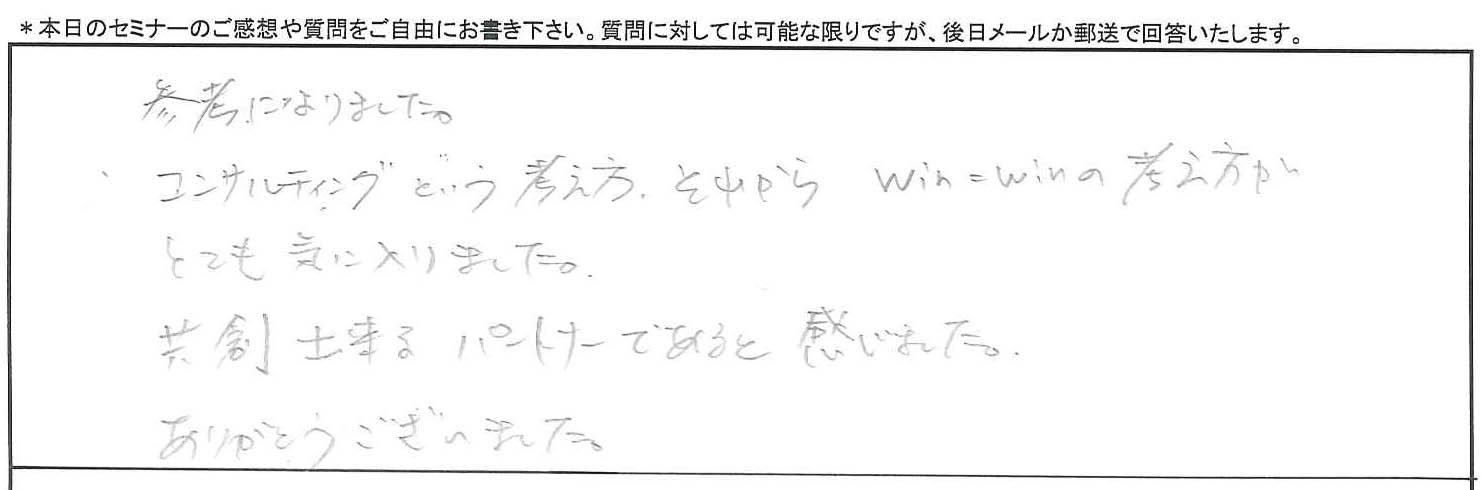 *本日のセミナーのご感想や質問をご自由にお書き下さい。質問に対しては可能な限りですが、後日メールか郵送で回答いたします。
参考になりました。
コンサルティングという考え方、それから win=winの考え方が
とても気に入りました。
共創出来るパートナーであると感じました。
ありがとうございました。